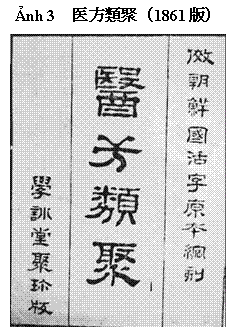 Ảnh 3 医方類聚（1861版）
俲朝鮮國活字原本縮刻
醫方類聚
學訓堂聚珍版